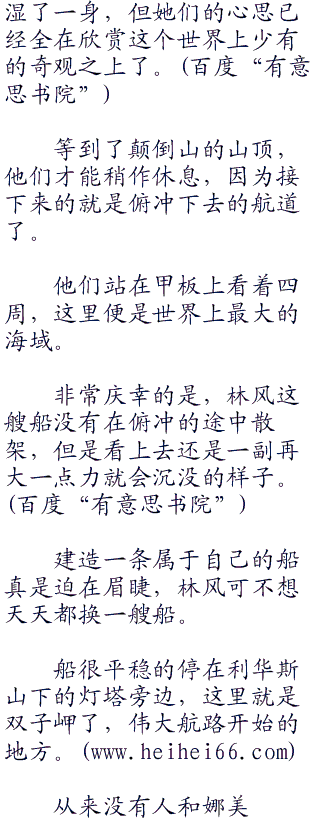 湿了一身，但她们的心思已
经全在欣赏这个世界上少有
的奇观之上了。(百度“有意
思书院”)
等到了颠倒山的山顶，
他们才能稍作休息，因为接
下来的就是俯冲下去的航道
了。
他们站在甲板上看着四
周，这里便是世界上最大的
海域。
非常庆幸的是，林风这
艘船没有在俯冲的途中散
架，但是看上去还是一副再
大一点力就会沉没的样子。
(百度“有意思书院”)
建造一条属于自己的船
真是迫在眉睫，林风可不想
天天都换一艘船。
船很平稳的停在利华斯
山下的灯塔旁边，这里就是
双子岬了，伟大航路开始的
地方。(www.heihei66.com)
从来没有人和娜美